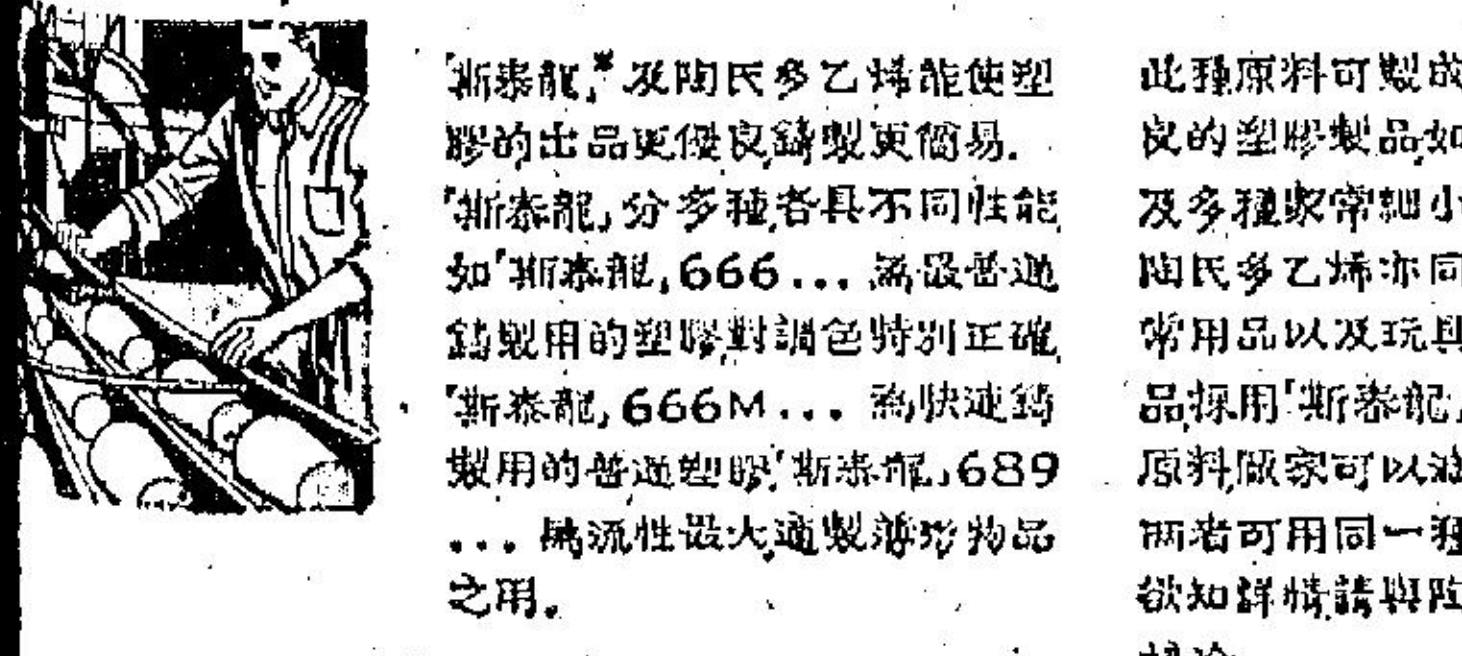 「斯泰龍」*及陶氏多乙烯能使塑
膠的出品更優良鑄製更簡易.
「斯泰龍」分多種各具不同性能
如「斯泰龍」666... 為最普通
鑄製用的塑膠,對調色特別正確
「斯泰龍」666M... 為快速鑄
製用的普通塑膠「斯泰龍」689
... 為流性最大,適製薄形物品
之用。
此種原料可製成
良的塑膠製品如
及多種家常細小
陶氏多乙烯亦同
常用品以及玩具
品採用「斯泰龍」
原料,廠家可以
兩者可用同一種
欲知詳情請與陶